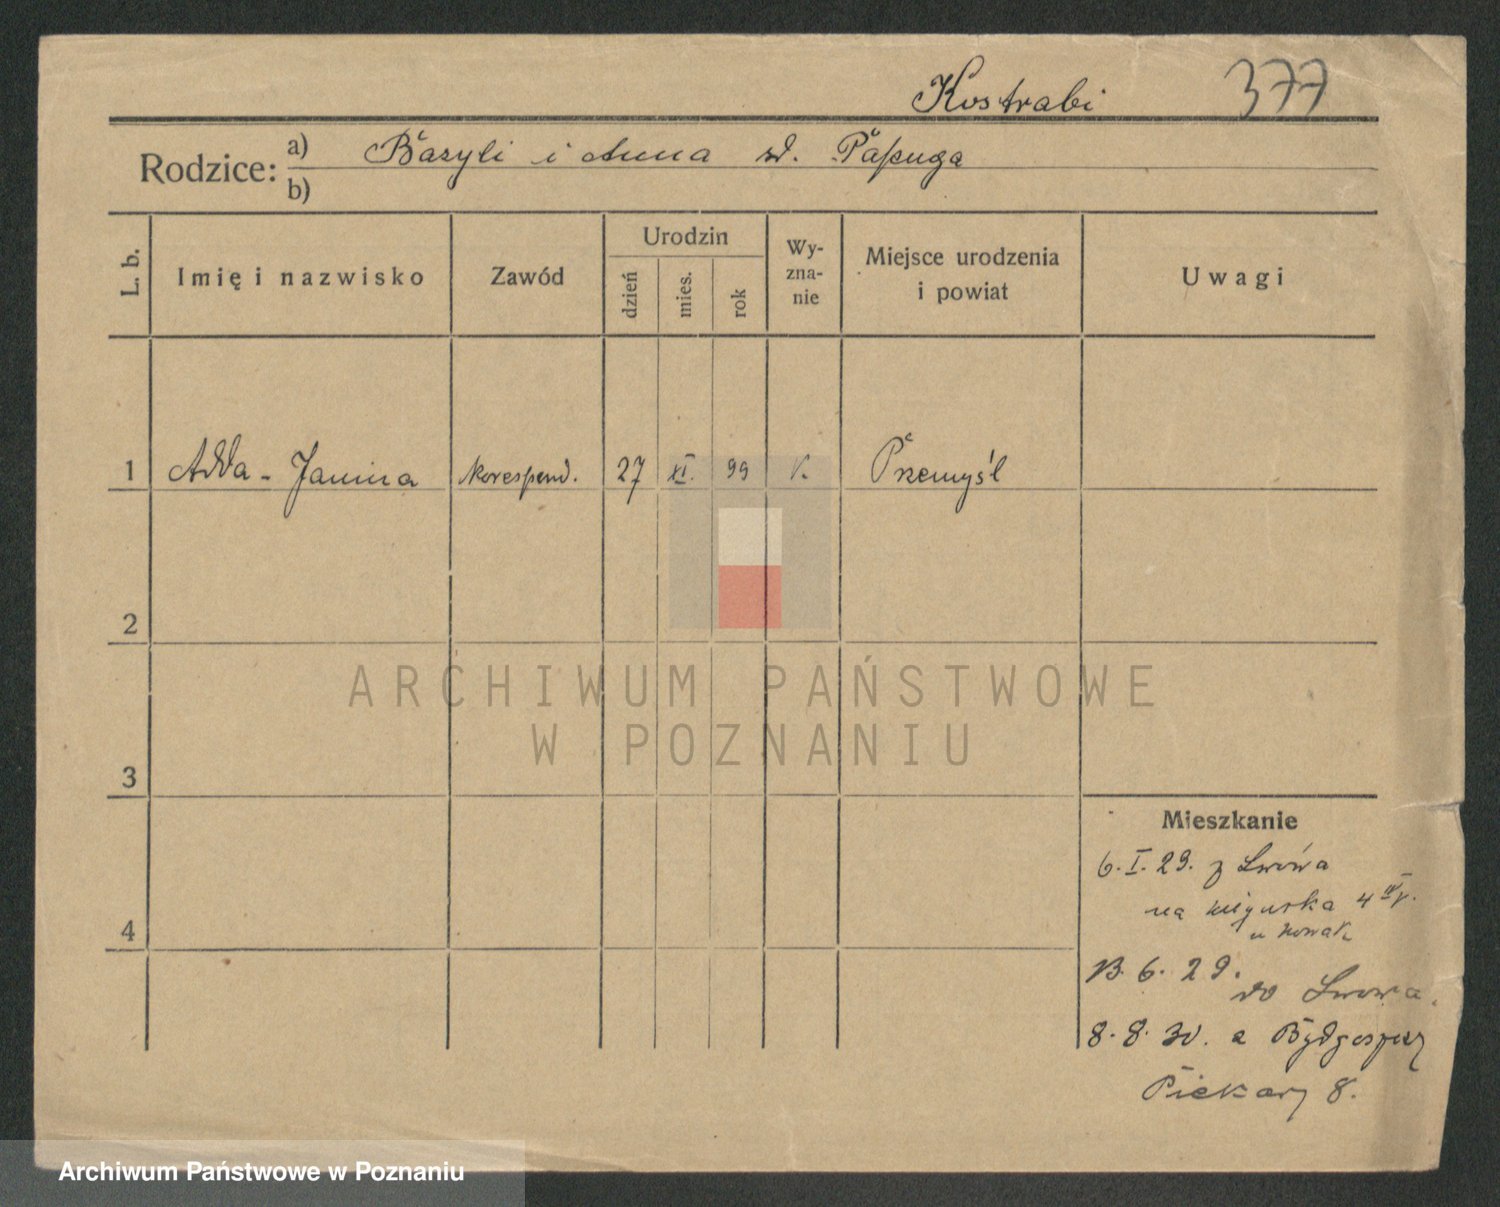 Kostrabi 377
Rodzice: a) Bazyli i Anna zd. Papuga
b)
L. b. Imię i nazwisko Zawód Urodzin dzień mies. rok Wy-zna-nie Miejsce urodzenia i powiat Uwagi
1 Adda - Janina korespond. 27 XI. 99 k. Przemyśl
2
ARCHIWUM PAŃSTWOWE
W POZNANIU
3
Mieszkanie
6. I. 29. z Lwowa
na 4
u Nowak
4
13. 6. 29.
do Lwowa.
8. 8. 30. z Bydgoszczy
Piekary 8.
Archiwum Państwowe w Poznaniu